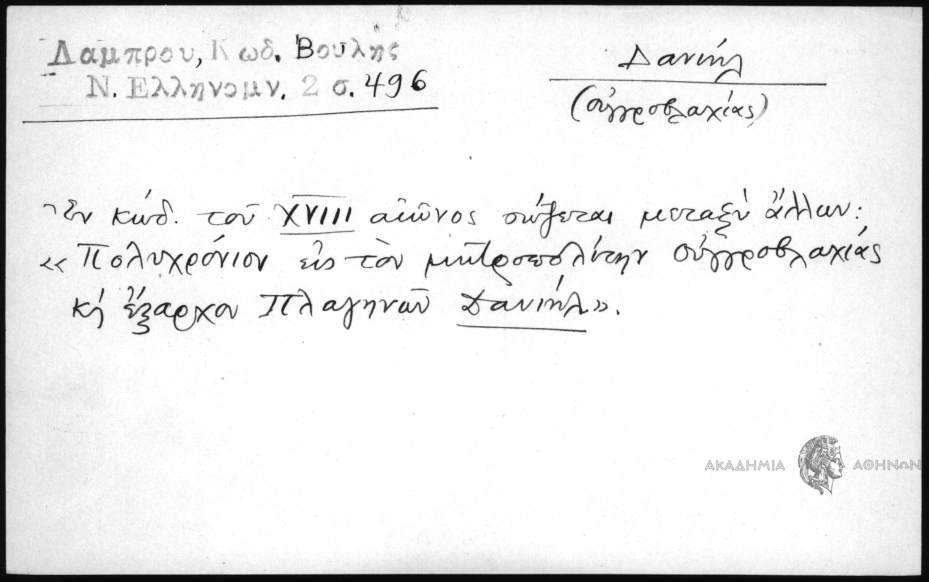 Λαμπρου, Κωδ. Βουλης
Ν. Ελληνομν. 2 σ. 496
Δανιήλ
(οὐγγροβλαχίας)
Ἐν κώδ. τοῦ XVIII αἰῶνος σώζεται μεταξὺ ἄλλων:
«Πολυχρόνιον εἰς τὸν μητροπολίτην οὐγγροβλαχίας
κὴ ἔξαρχον Πλαγηνῶν Δανιήλ».
ΑΚΑΔΗΜΙΑ ΑΘΗΝΩΝ